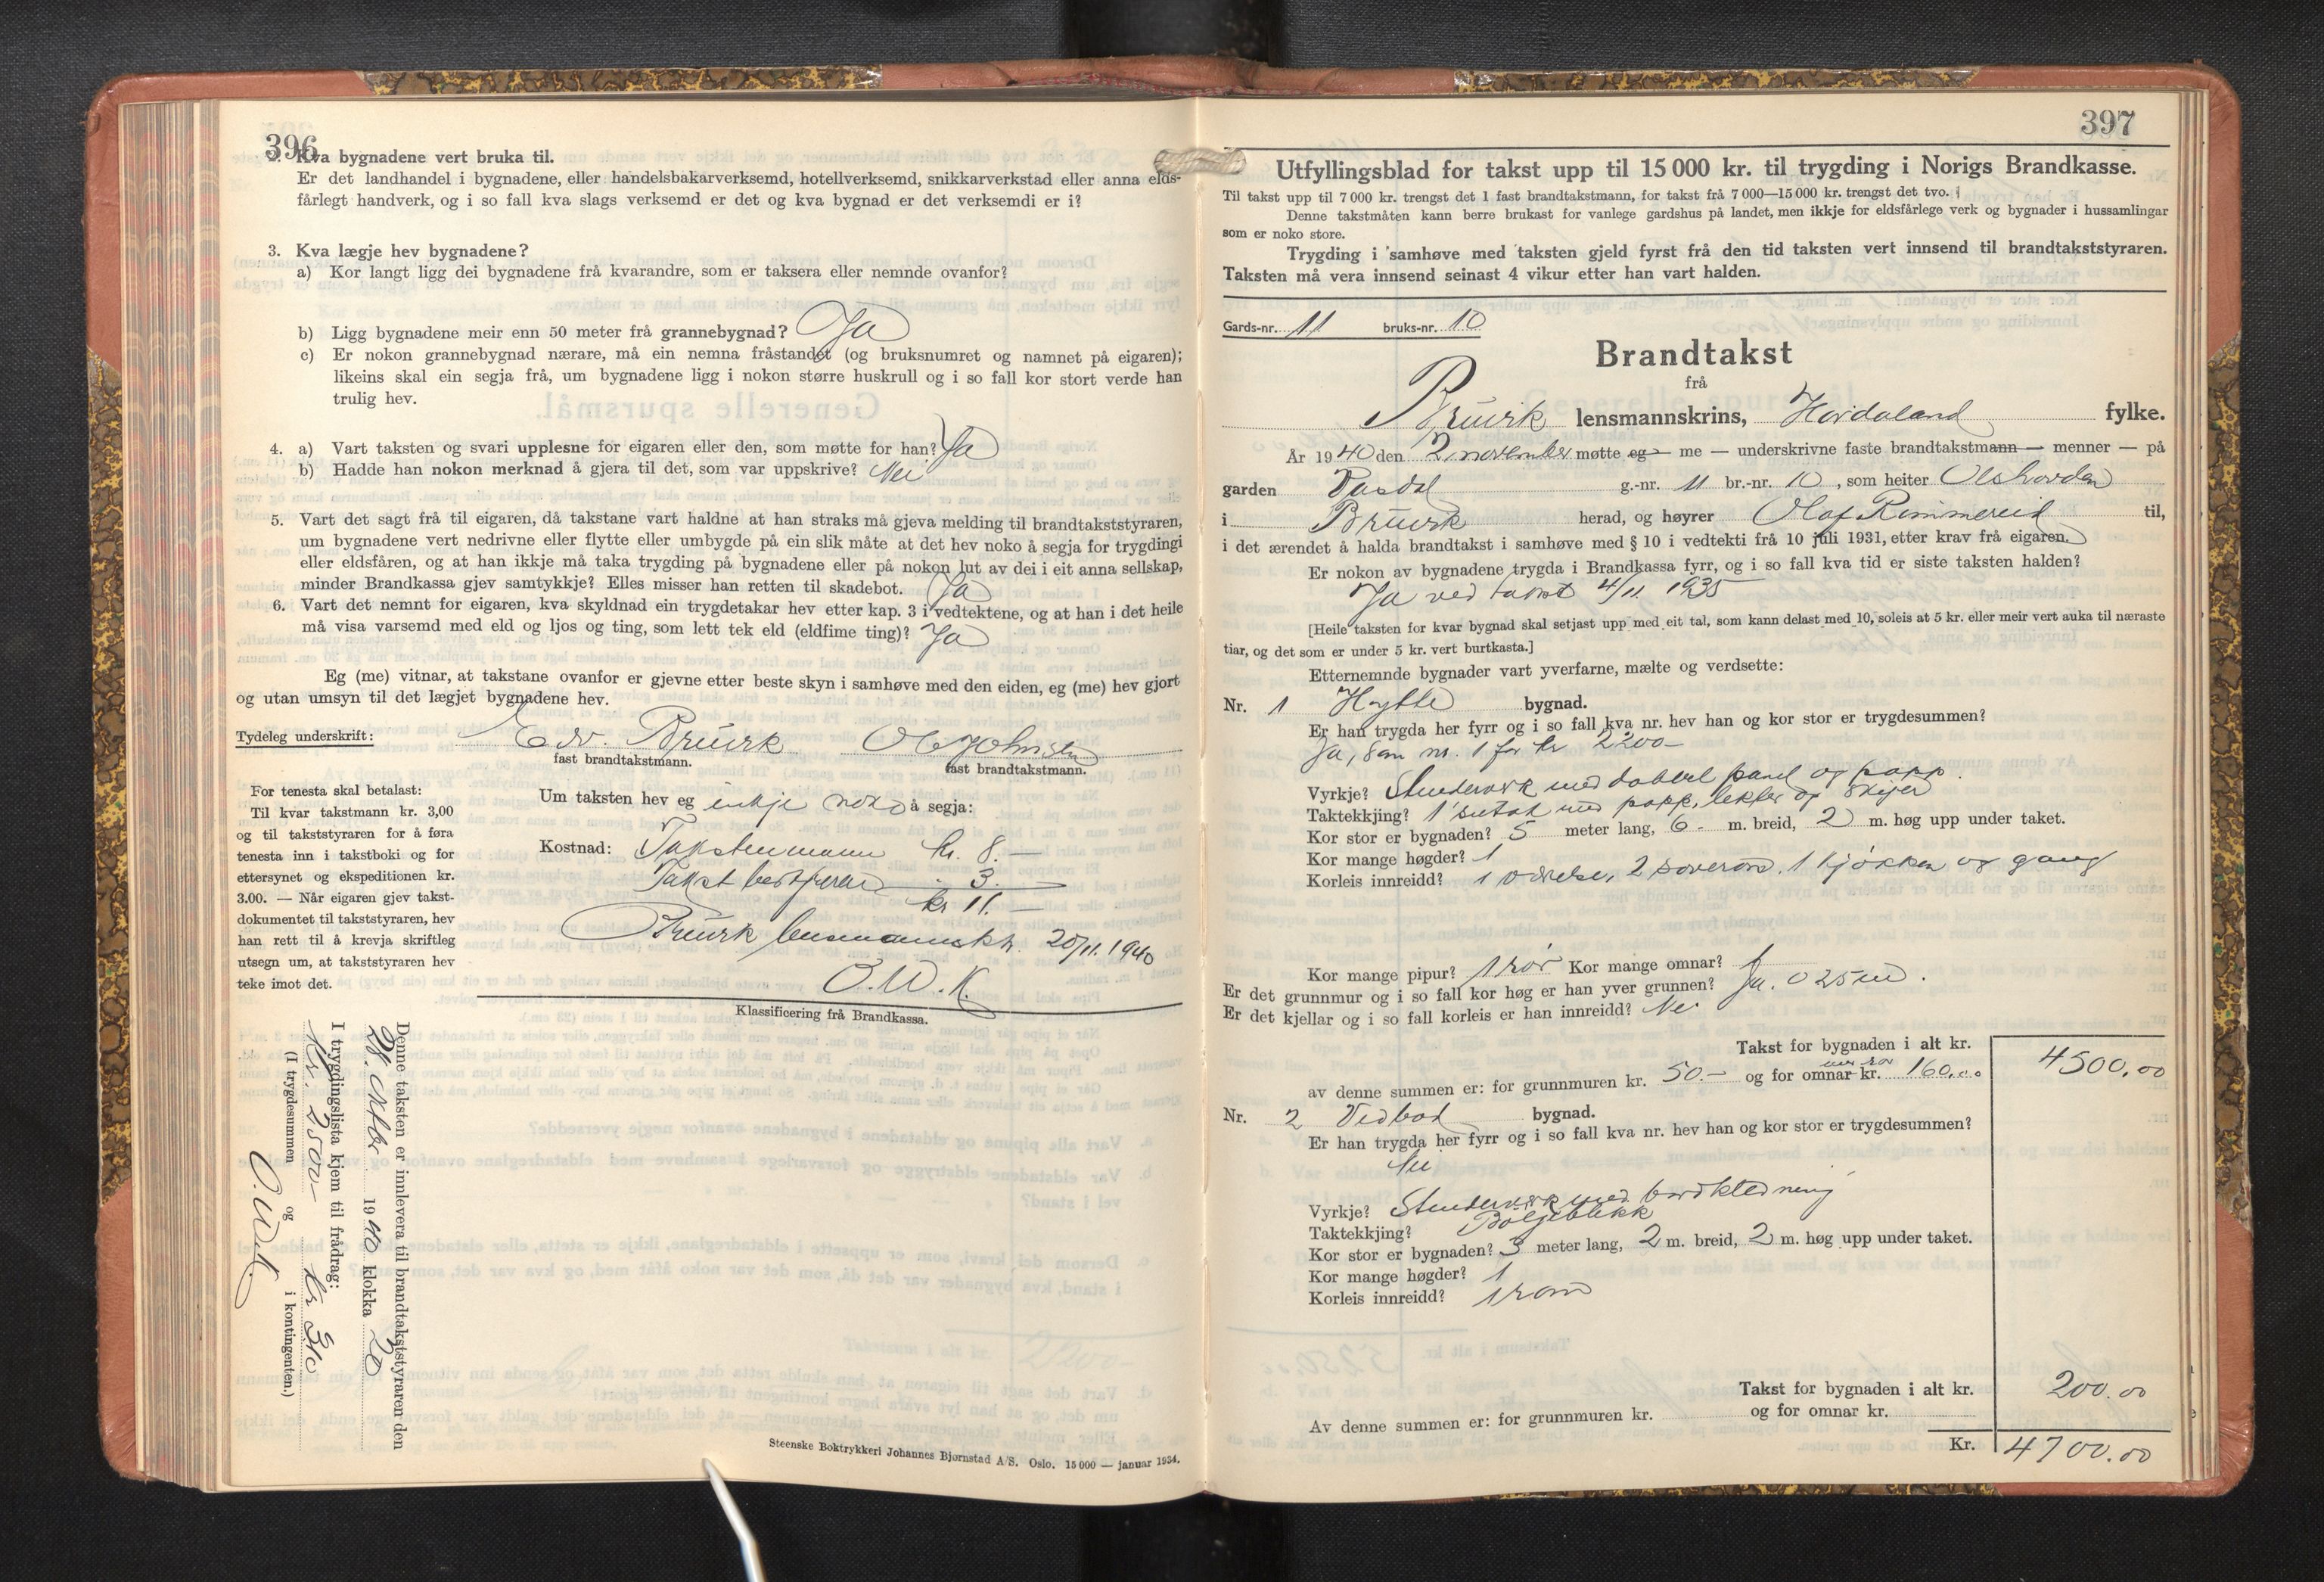 396
2. Kva bygnadene vert bruka til.
Er det landhandel i bygnadene, eller handelsbakarverksemd, hotellverksemd, snikkarverkstad eller anna elds-
fårlegt handverk, og i so fall kva slags verksemd er det og kva bygnad er det verksemdi er i?
3. Kva lægje hev bygnadene?
a) Kor langt ligg dei bygnadene frå kvarandre, som er taksera eller nemnde ovanfor?
b) Ligg bygnadene meir enn 50 meter frå grannebygnad? Ja
c) Er nokon grannebygnad nærare, må ein nemna fråstandet (og bruksnumret og namnet på eigaren);
likeins skal ein segja frå, um bygnadene ligg i nokon større huskrull og i so fall kor stort verde han
trulig hev.
4. a) Vart taksten og svari upplesne for eigaren eller den, som møtte for han? Ja
b) Hadde han nokon merknad å gjera til det, som var uppskrive? Nei
5. Vart det sagt frå til eigaren, då takstane vart haldne at han straks må gjeva melding til brandtakststyraren,
um bygnadene vert nedrivne eller flytte eller umbygde på ein slik måte at det hev noko å segja for trygdingi
eller eldsfåren, og at han ikkje må taka trygding på bygnadene eller på nokon lut av dei i eit anna sellskap,
minder Brandkassa gjev samtykkje? Elles misser han retten til skadebot. Ja
6. Vart det nemnt for eigaren, kva skyldnad ein trygdetakar hev etter kap. 3 i vedtektene, og at han i det heile
må visa varsemd med eld og ljos og ting, som lett tek eld (eldfime ting)? Ja
Eg (me) vitnar, at takstane ovanfor er gjevne etter beste skyn i samhøve med den eiden, eg (me) hev gjort
og utan umsyn til det lægjet bygnadene hev.
Tydeleg underskrift: Edv. Bruvik Ole Johnsen
fast brandtakstmann. fast brandtakstmann.
For tenesta skal betalast:
Til kvar takstmann kr. 3,00
og til takststyraren for å føra
tenesta inn i takstboki og for
ettersynet og ekspeditionen kr.
3.00. — Når eigaren gjev takst-
dokumentet til takststyraren, hev
han rett til å krevja skriftleg
utsegn um, at takststyraren hev
teke imot det.
Um taksten hev eg inkje noko å segja:
Kostnad: Takstenmann kr. 8.—
Takst bestyrer - 3.
kr 11.—
Bruvik lensmannsktr. 20/11. 1940
O. W. K.
Klassificering frå Brandkassa.
Denne taksten er innlevera til brandtakststyraren den
28. oktbr 1940 klokka 20
I trygdingslista kjem til frådrag:
Kr. 2500— kr 3.40
(I trygdesummen og i kontingenten.)
Steenske Boktrykkeri Johannes Bjørnstad A/S. Oslo. 15 000 — januar 1934.
397
Utfyllingsblad for takst upp til 15 000 kr. til trygding i Norigs Brandkasse.
Til takst upp til 7 000 kr. trengst det 1 fast brandtakstmann, for takst frå 7 000—15 000 kr. trengst det tvo.
Denne takstmåten kann berre brukast for vanlege gardshus på landet, men ikkje for eldsfårlege verk og bygnader i hussamlingar
som er noko store.
Trygding i samhøve med taksten gjeld fyrst frå den tid taksten vert innsend til brandtakststyraren.
Taksten må vera innsend seinast 4 vikur etter han vart halden.
Gards-nr. 11 bruks-nr. 10
Brandtakst
frå
Bruvik lensmannskrins, Hordaland fylke.
År 1940 den 2. november møtte eg — me — underskrivne faste brandtakstmann — menner — på
garden g.-nr. 11 br.-nr. 10, som heiter
i Bruvik herad, og høyrer Olaf Rimmereid til,
i det ærendet å halda brandtakst i samhøve med § 10 i vedtekti frå 10 juli 1931, etter krav frå eigaren.
Er nokon av bygnadene trygda i Brandkassa fyrr, og i so fall kva tid er siste taksten halden?
Ja ved takst 4/11 1935
[Heile taksten for kvar bygnad skal setjast upp med eit tal, som kann delast med 10, soleis at 5 kr. eller meir vert auka til næraste
tiar, og det som er under 5 kr. vert burtkasta.]
Etternemnde bygnader vart yverfarne, mælte og verdsette:
Nr. 1 Hytte bygnad.
Er han trygda her fyrr og i so fall kva nr. hev han og kor stor er trygdesummen?
Ja, som nr. 1 for kr 2200—
Vyrkje? Stenderverk med dobbel panel og papp.
Taktekkjing? 1" sutak med papp, lekter og skifer
Kor stor er bygnaden? 5 meter lang, 6. m. breid, 2 m. høg upp under taket.
Kor mange høgder? 1
Korleis innreidd? 1 værelse, 2 soverom, 1 kjøkken og gang
Kor mange pipur? 1 rør Kor mange omnar? 1
Er det grunnmur og i so fall kor høg er han yver grunnen? Ja. 0 25 cm.
Er det kjellar og i so fall korleis er han innreidd? Nei
Takst for bygnaden i alt kr. 4500.00
av denne summen er: for grunnmuren kr. 50.— og for omnar kr. 160.00
Nr. 2 Vedbod bygnad.
Er han trygda her fyrr og i so fall kva nr. hev han og kor stor er trygdesummen?
Nei
Vyrkje? Stenderverk med bordkledning
Taktekkjing? Bølgeblikk
Kor stor er bygnaden? 3 meter lang, 2 m. breid, 2 m. høg upp under taket.
Kor mange høgder? 1
Korleis innreidd? 1 rom
Takst for bygnaden i alt kr. 200.00
Av denne summen er: for grunnmuren kr. og for omnar kr.
Kr. 4700.00